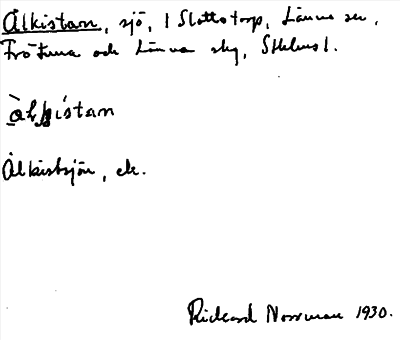 Ålkistan, sjö, 1 Slottstorp, Länna sn,
Frötuna och Länna skg, Sthlms l.
ålkistan
Ålkistsjön, ek.
Rickard Norrman 1930.